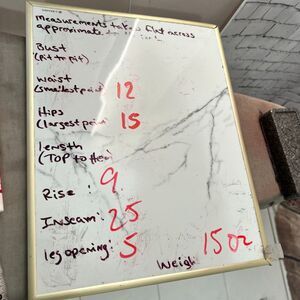 measurements taken flat across
approximate
Bust
(Pit to Pit)
Waist
(smallest point) 12
Hips
(largest point) 15
length
(TOP to Hem)
Rise : 9
Inseam: 25
leg opening: 5
Weigh 15 oz